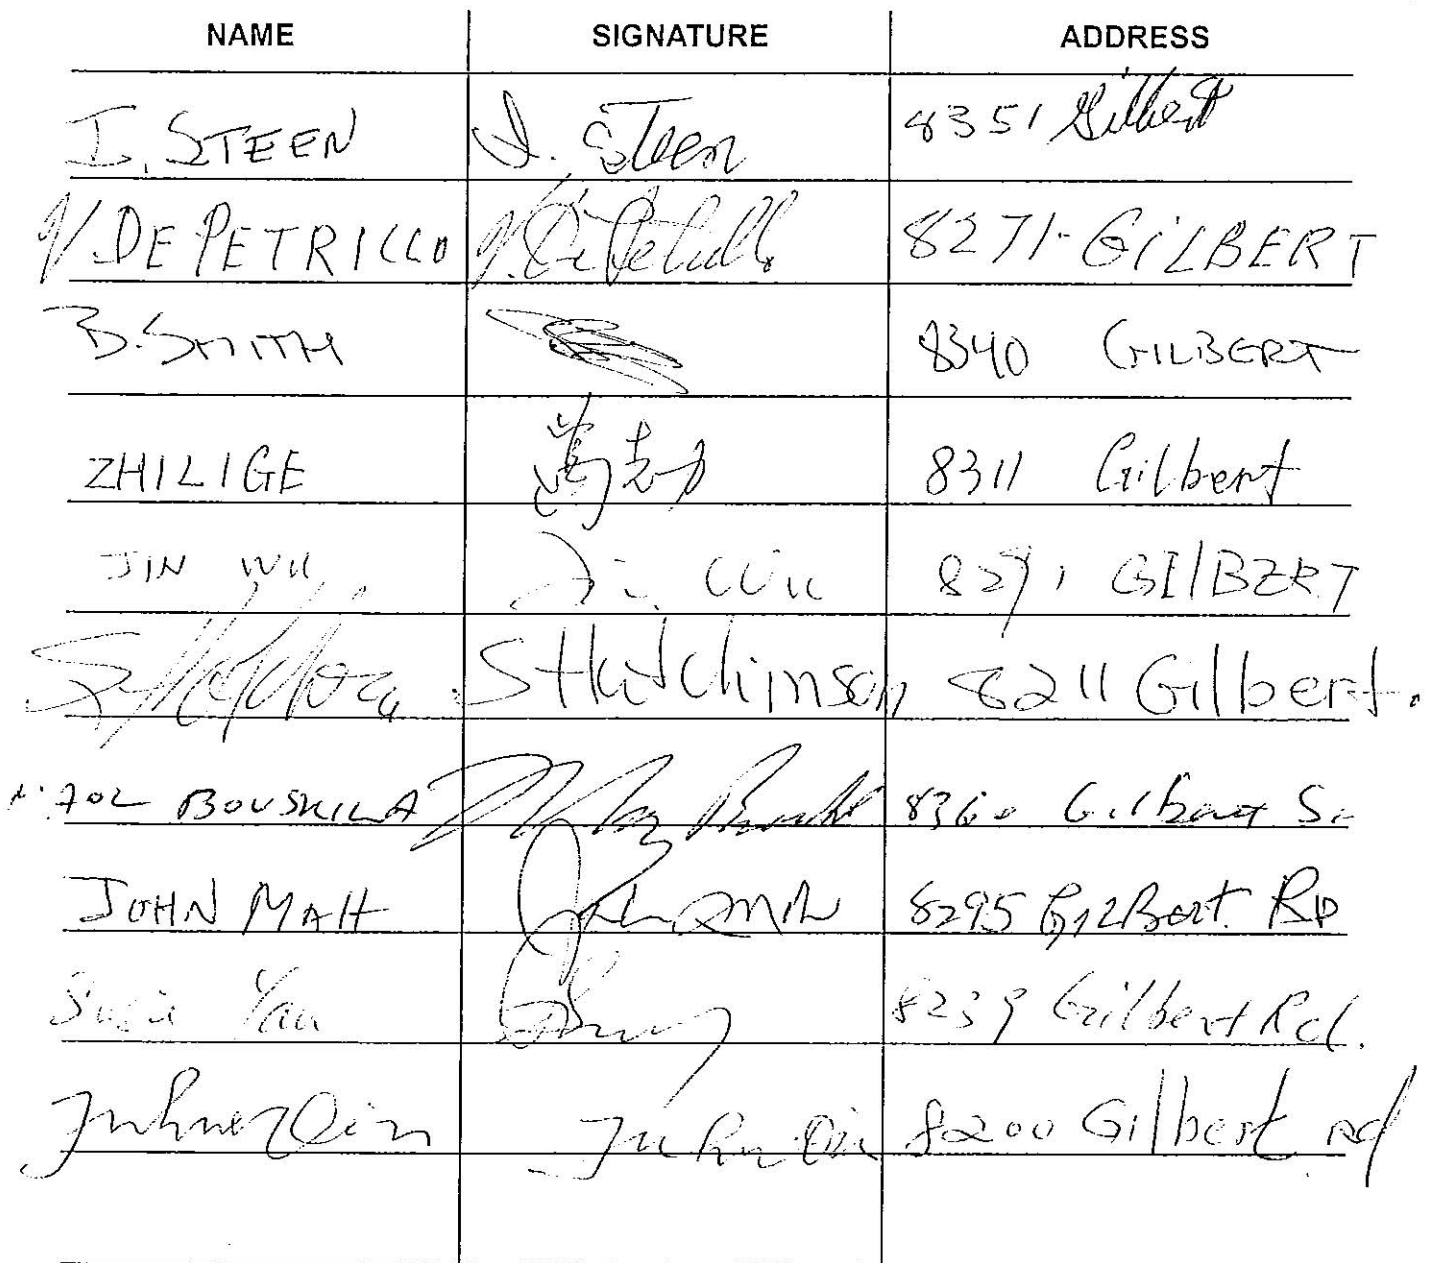 NAME SIGNATURE ADDRESS
I. STEEN I. Steen 8351 Gilbert
V. DE PETRILLO V. De Petrillo 8271- GILBERT
B. SMITH 8340 GILBERT
ZHILIGE 葛志力 8311 Gilbert
JIN WU Jin Wu 8291 GILBERT
S Hutchinson 8211 Gilbert.
BOUSKILA 8360 Gilbert
JOHN MAH John Mah 8295 Gilbert. RD
Susie Yau 8239 Gilbert Rd.
Qin 8200 Gilbert rd